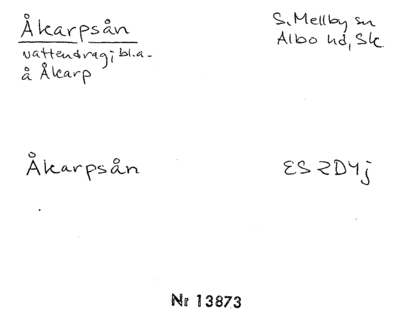 Åkarpsån
S. Mellby sn
vattendrag; bl.a.
Albo hd, Sk
å Åkarp
Åkarpsån
ES 2D4j
Nr 13873